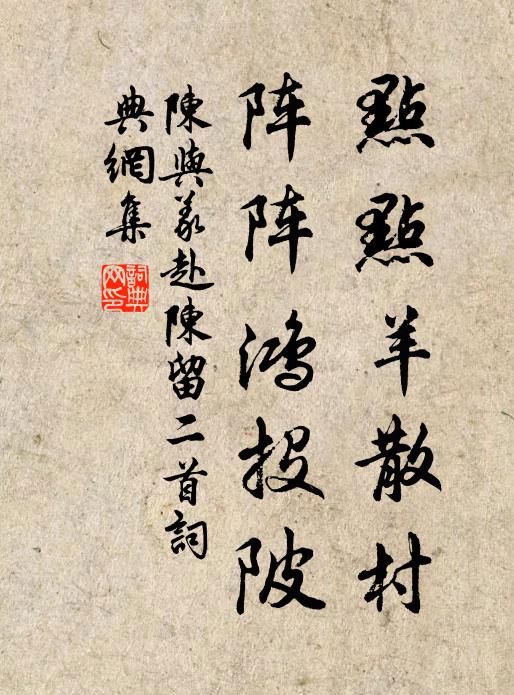 點點羊散村
阵阵鸿投陂
陳與義赴陳留二首詞
典網集
詞典
网印